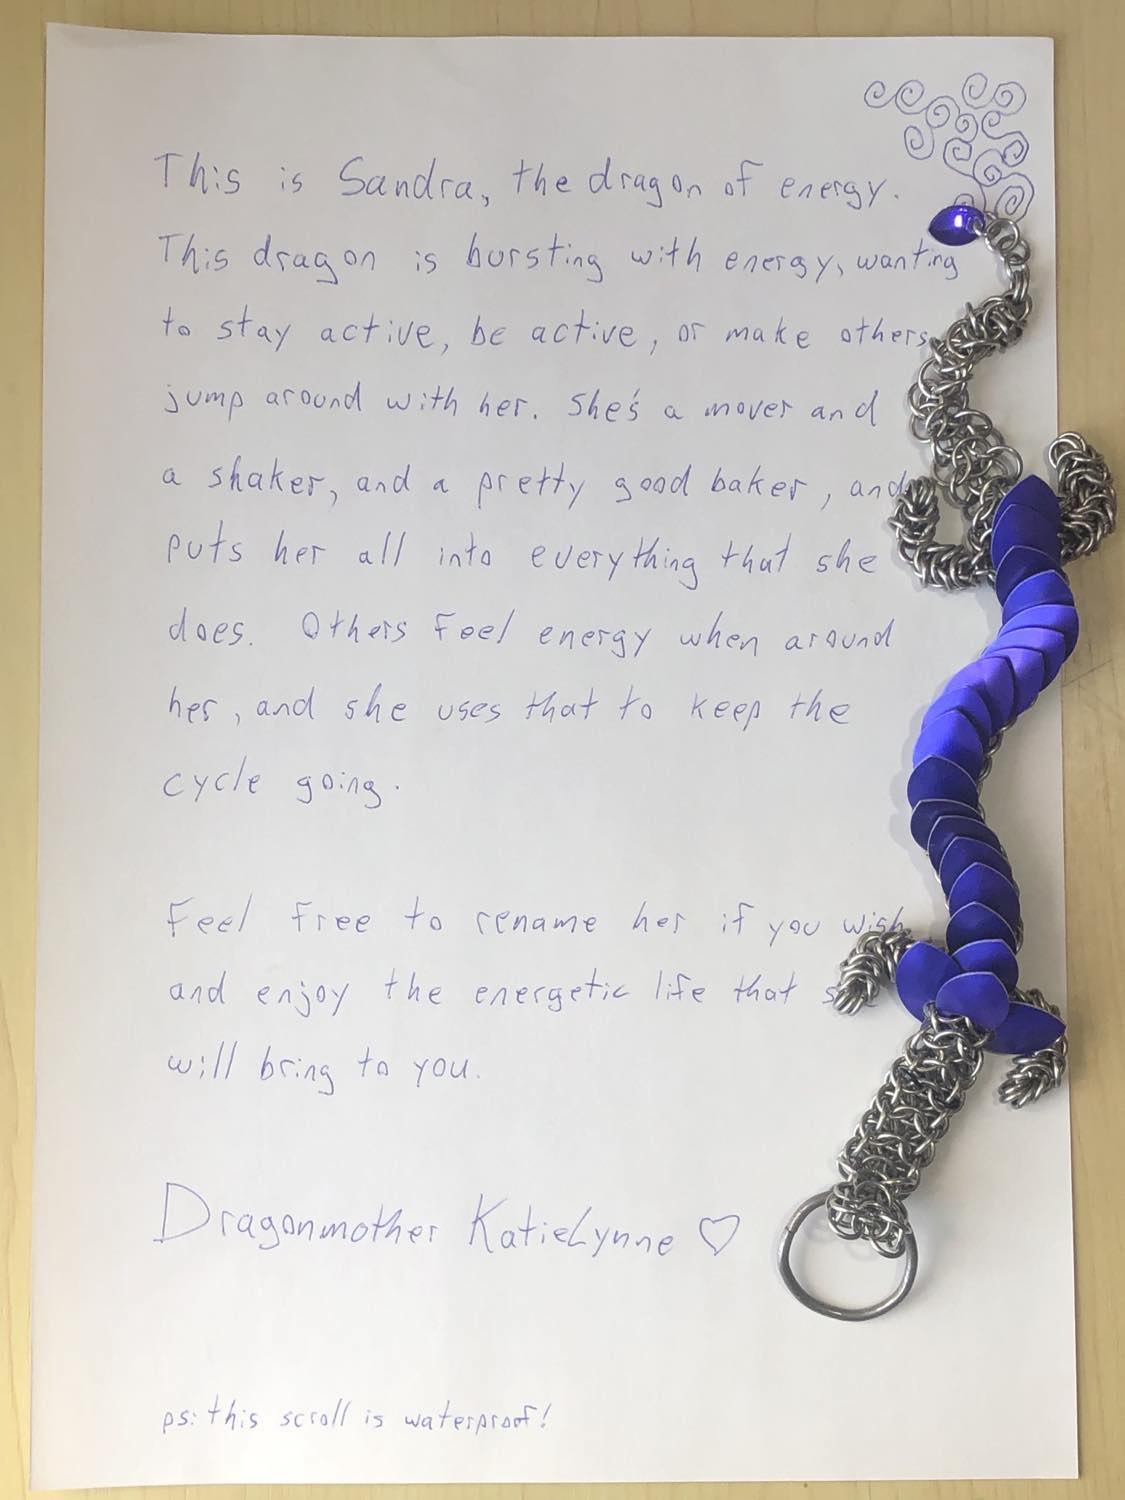 This is Sandra, the dragon of energy.
This dragon is bursting with energy, wanting
to stay active, be active, or make others
jump around with her. She's a mover and
a shaker, and a pretty good baker, and
puts her all into everything that she
does. Others feel energy when around
her, and she uses that to keep the
cycle going.
Feel free to rename her if you wish
and enjoy the energetic life that
will bring to you.
Dragonmother KatieLynne ♡
ps: this scroll is waterproof!